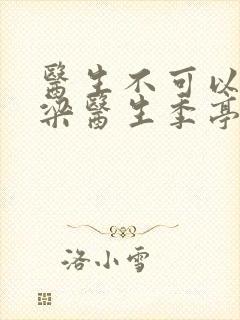 醫生不可以
梁醫生季亭
洛小雪